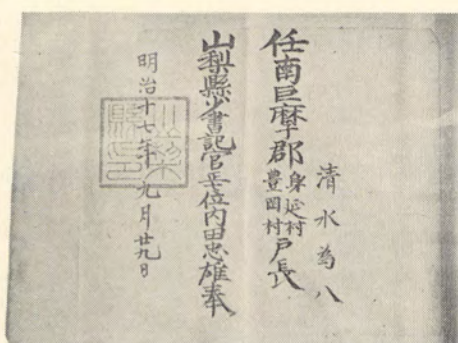 清水為八
任南巨摩郡身延村豊岡村戸長
山梨縣少書記官正七位内田忠雄奉
明治十七年九月廿九日
山梨縣印